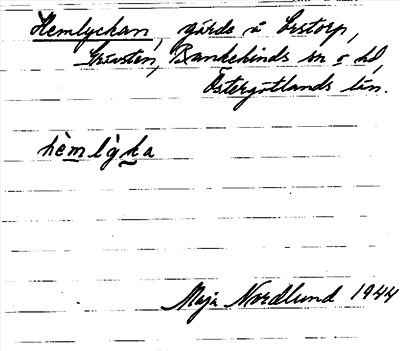 Hemlyckan, gärde å Orstorp,
Grävsten, Bankekinds sn o hd,
Östergötlands län.
hèmlỳka
Maja Nordlund 1944